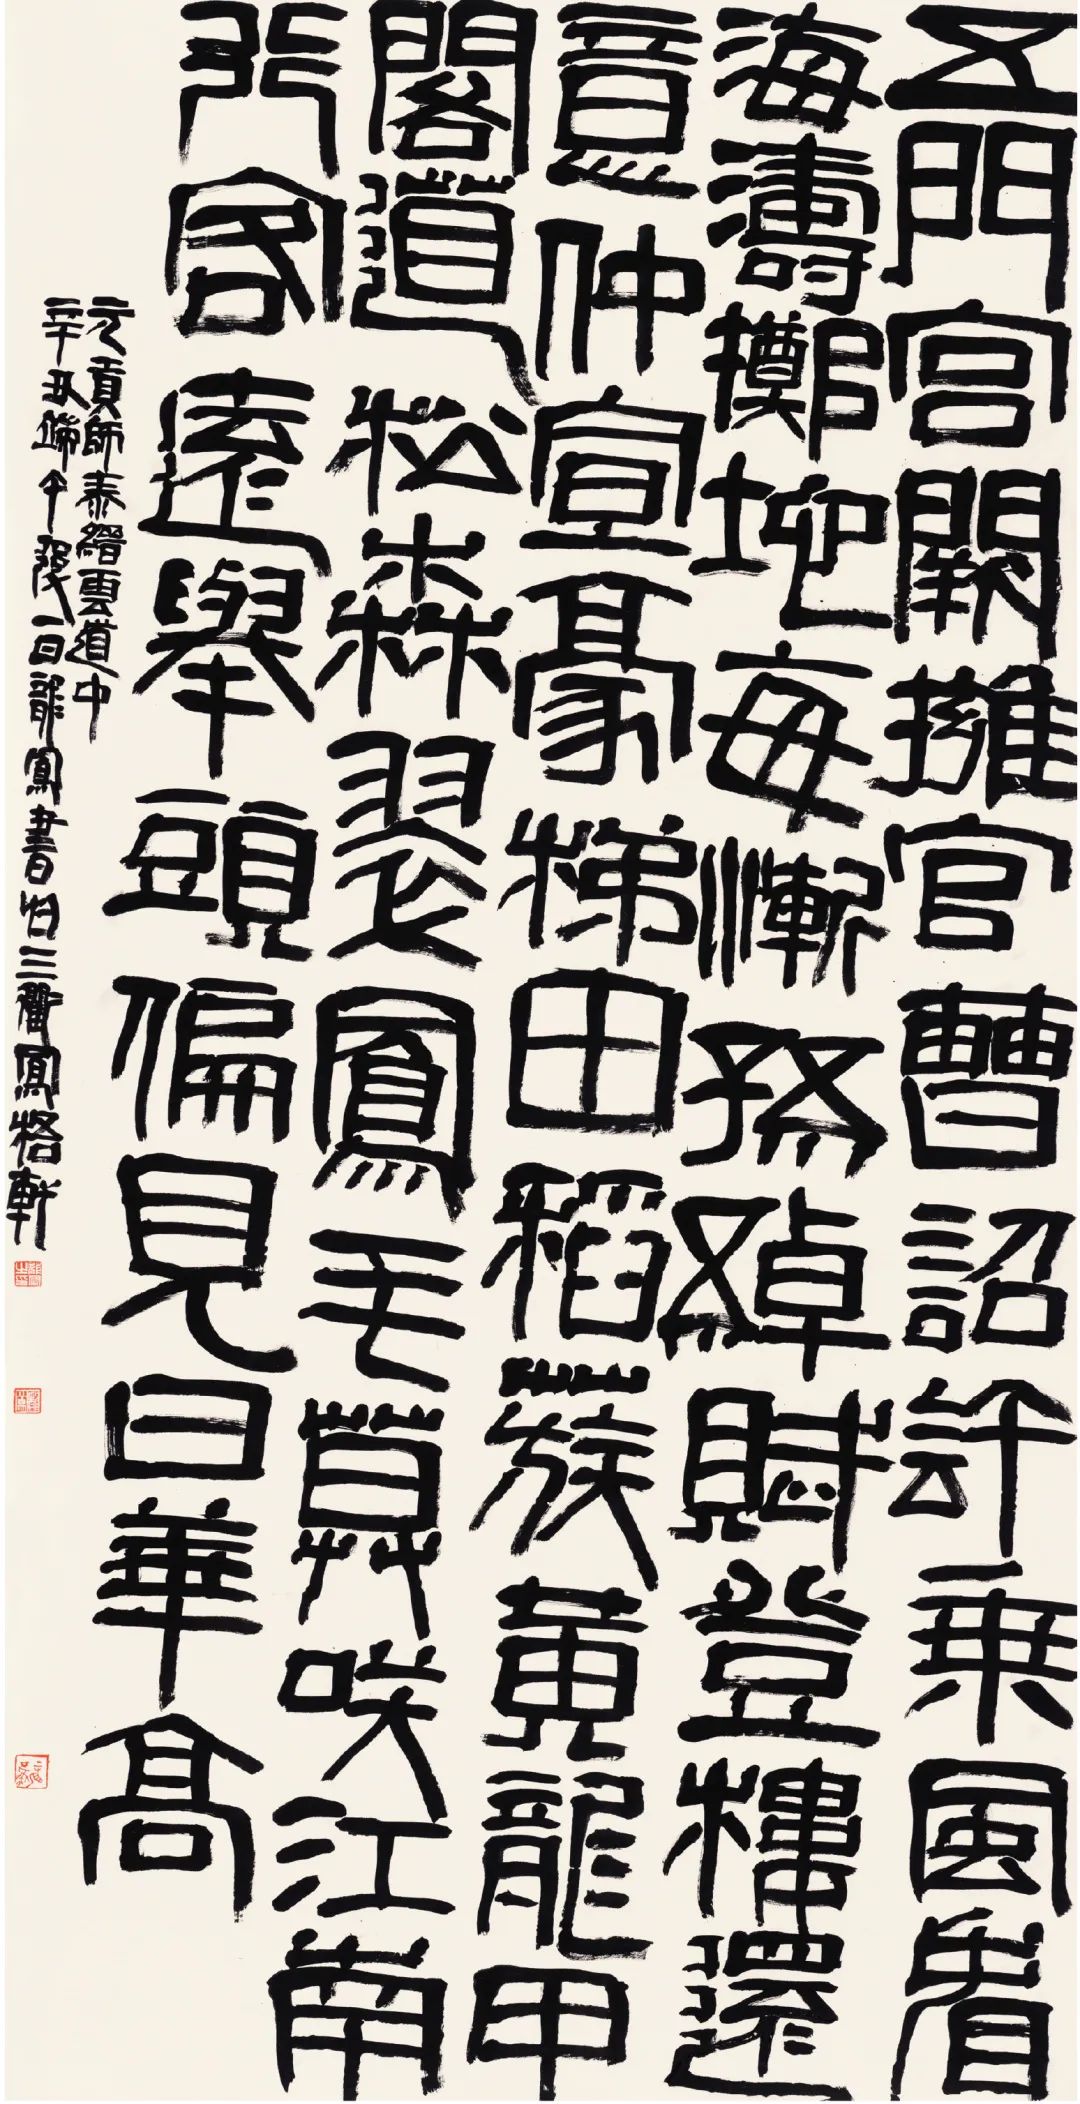 五門宮闕擁官曹詔許乘風看
海濤擲地每慚孫綽賦登樓還
意仲宣豪梯田稻蔟黃龍甲
閣道松森翠鳳毛莫咲江南
行客遠舉頭偏見日華高
元貢師泰縉雲道中
辛丑端午後一日龍鳳書三衢鳳格軒